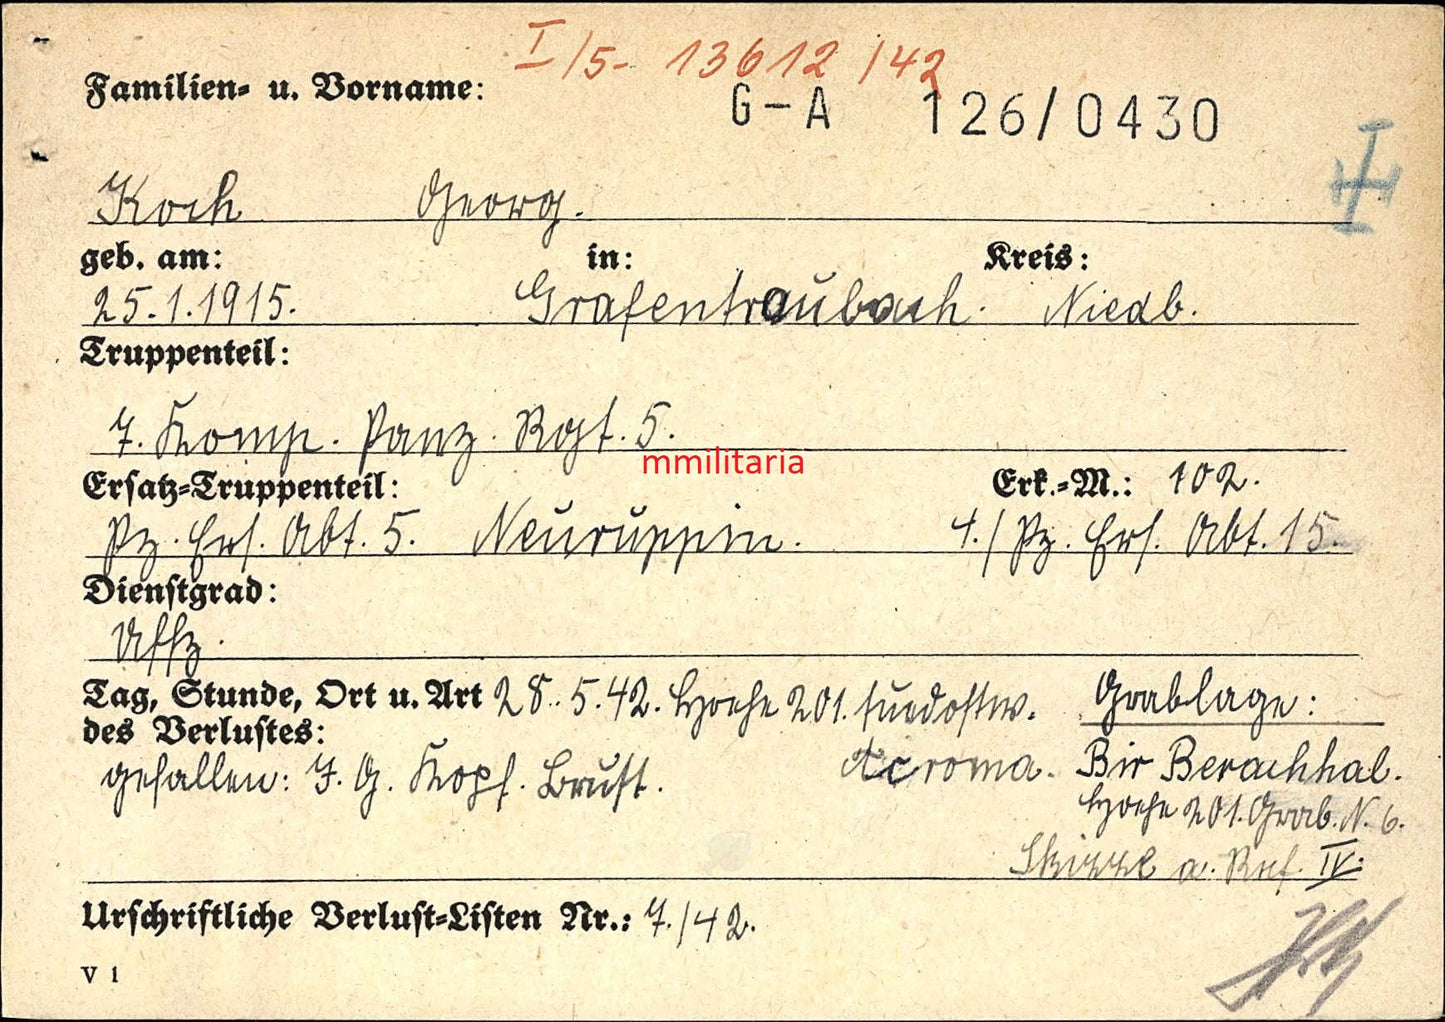 I/5- 13612 /42
Familien- u. Vorname:
G-A 126/0430
Koch Georg.
geb. am: in: Kreis:
25.1.1915. Grafentraubach. Niedb.
Truppenteil:
7. Komp. Panz. Rgt. 5.
mmilitaria
Ersatz-Truppenteil: Erk.-M.: 102.
Pz. Ers. Abt. 5. Neuruppin. 1./Pz. Ers. Abt. 15.
Dienstgrad:
Uffz.
Tag, Stunde, Ort u. Art 28.5.42. Hoehe 201. suedostw. Grablage:
des Verlustes:
gefallen: J. G. Kopf. Brust. Acroma. Bir Berachhal.
Hoehe 201. Grab. N. 6.
Skizze a. Ref. IV.
Urschriftliche Verlust-Listen Nr.: 7./42.
V 1